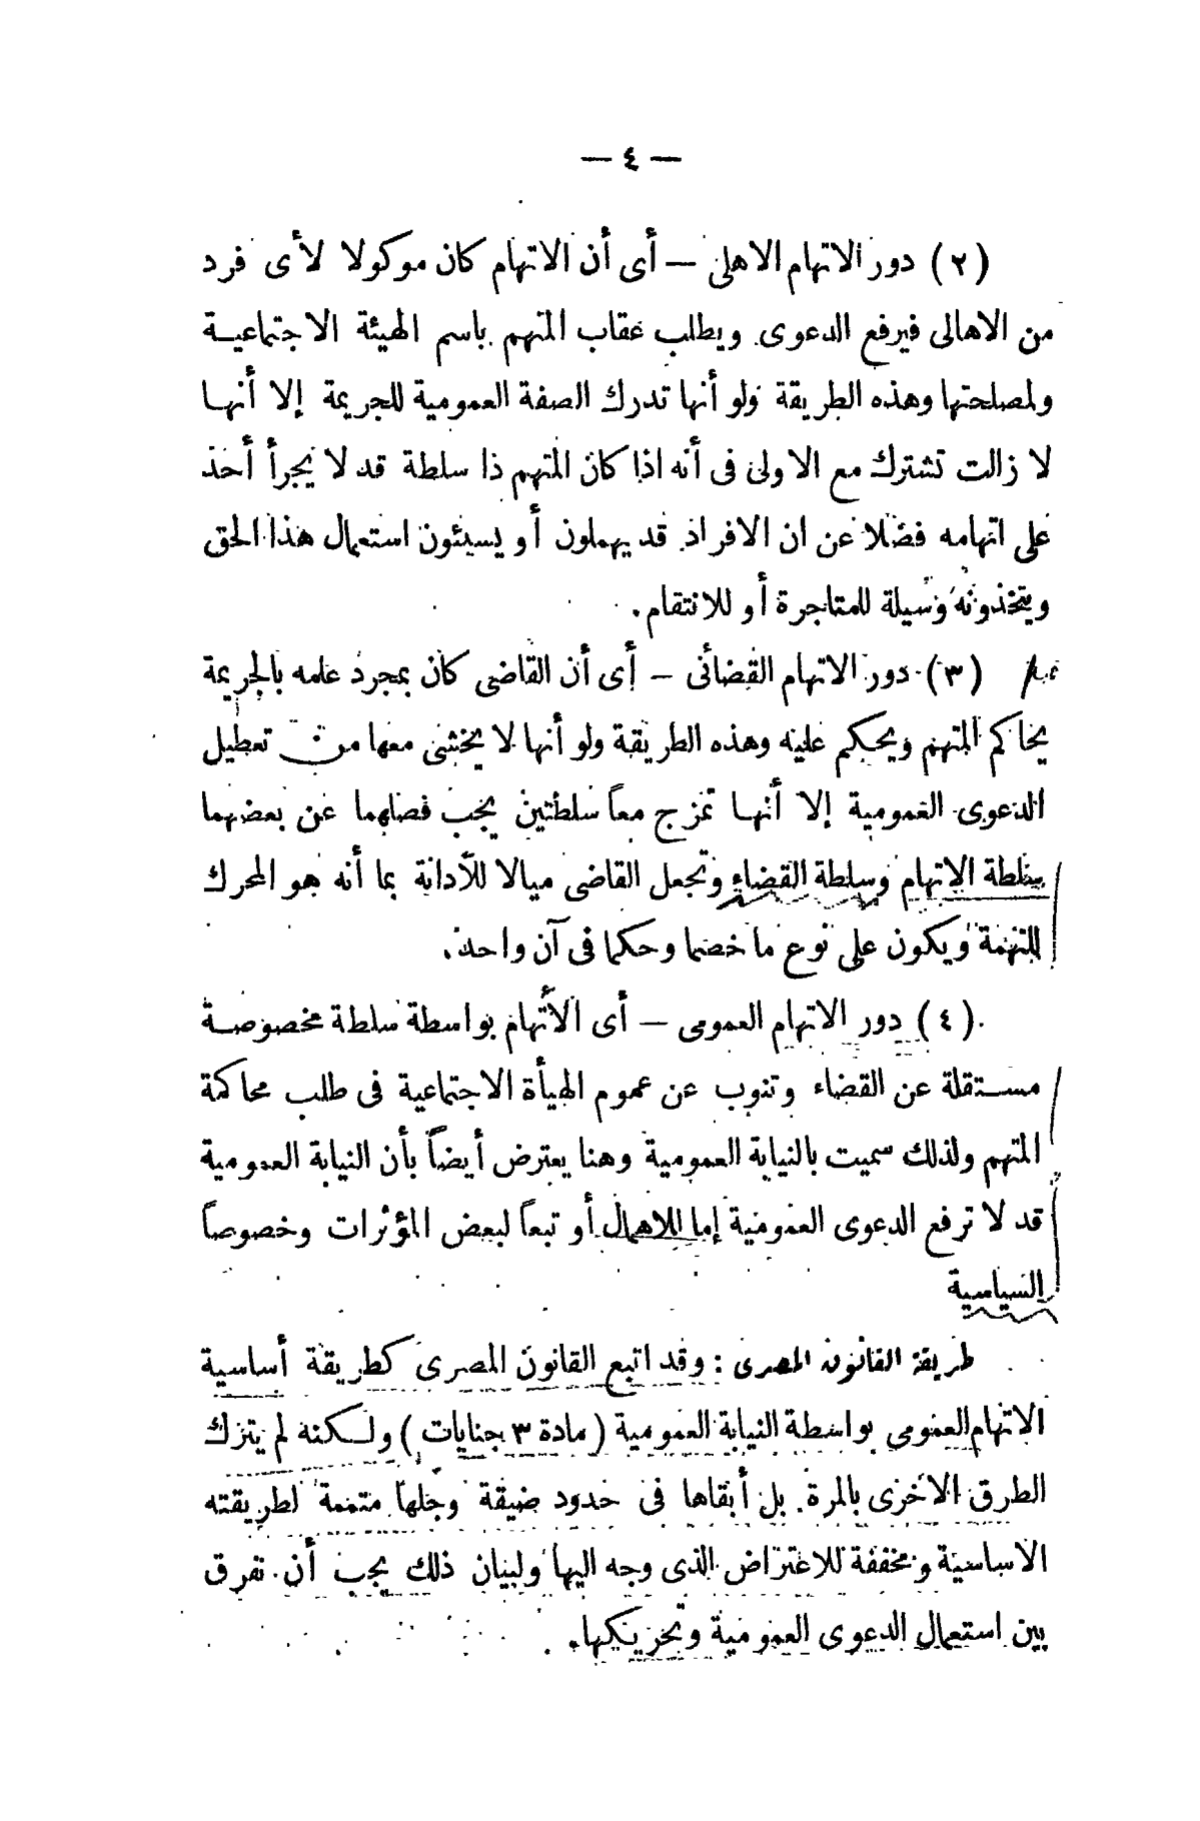 — ٤ —
(٢) دور الاتهام الاهلى — أى أن الاتهام كان موكولا لأى فرد
من الاهالى فيرفع الدعوى ويطلب عقاب المتهم باسم الهيئة الاجتماعيـة
ولمصلحتها وهذه الطريقة ولو أنها تدرك الصفة العمومية للجريمة إلا أنهـا
لا زالت تشترك مع الاولى فى أنه اذا كان المتهم ذا سلطة قد لا يجرأ أحد
على اتهامه فضلا عن ان الافراد قد يهملون أو يسيئون استعمال هذا الحق
ويتخذونه وسيلة للمتاجرة أو للانتقام.
(٣) دور الاتهام القضائى — أى أن القاضى كان بمجرد علمه بالجريمة
يحاكم المتهم ويحكم عليه وهذه الطريقة ولو أنها لا يخشى معها من تعطيل
الدعوى العمومية إلا أنهـا تمزج معاً سلطتين يجب فصلهما عن بعضهما
سلطة الاتهام وسلطة القضاء وتجعل القاضى ميالا للأدانة بما أنه هو المحرك
للتهمة ويكون على نوع ما خصما وحكما فى آن واحد.
(٤) دور الاتهام العمومى — أى الأتهام بواسطة سلطة مخصوصـة
مسـتقلة عن القضاء وتنوب عن عموم الهيأة الاجتماعية فى طلب محاكمة
المتهم ولذلك سميت بالنيابة العمومية وهنا يعترض أيضاً بأن النيابة العمومية
قد لا ترفع الدعوى العمومية إما للاهمال أو تبعاً لبعض المؤثرات وخصوصاً
السياسية
طريقة القانون المصرى : وقد اتبع القانون المصرى كطريقة أساسية
الاتهام العمومى بواسطة النيابة العمومية (مادة ٣ جنايات) ولـكنه لم يترك
الطرق الأخرى بالمرة بل أبقاها فى حدود ضيقة وجلها متممة لطريقته
الاساسية ومخففة للاعتراض الذى وجه اليها ولبيان ذلك يجب أن نفرق
بين استعمال الدعوى العمومية وتحريكها.